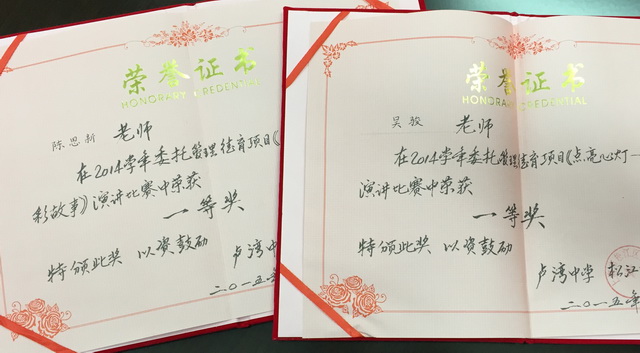 荣誉证书
HONORARY CREDENTIAL
陈思新 老师
在2014学年委托管理德育项目《
彩故事》演讲比赛中荣获
一等奖
特颁此奖 以资鼓励
卢湾
二〇一五年
荣誉证书
HONORARY CREDENTIAL
吴骏 老师
在2014学年委托管理德育项目《点亮心灯一
演讲比赛中荣获
一等奖
特颁此奖 以资鼓励
卢湾中学 松江
二〇一五年